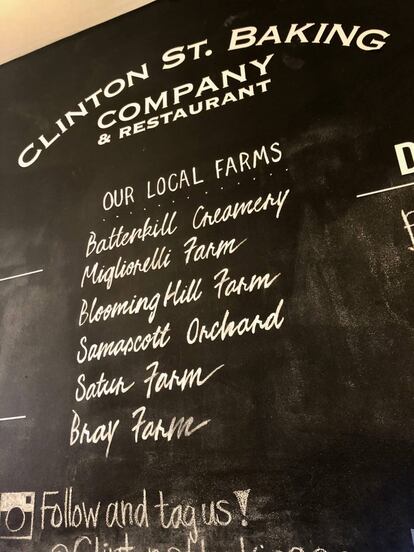 CLINTON ST. BAKING
COMPANY
& RESTAURANT
OUR LOCAL FARMS
Battenkill Creamery
Migliorelli Farm
Blooming Hill Farm
Samascott Orchard
Satur Farm
Bray Farm
Follow and tag us!